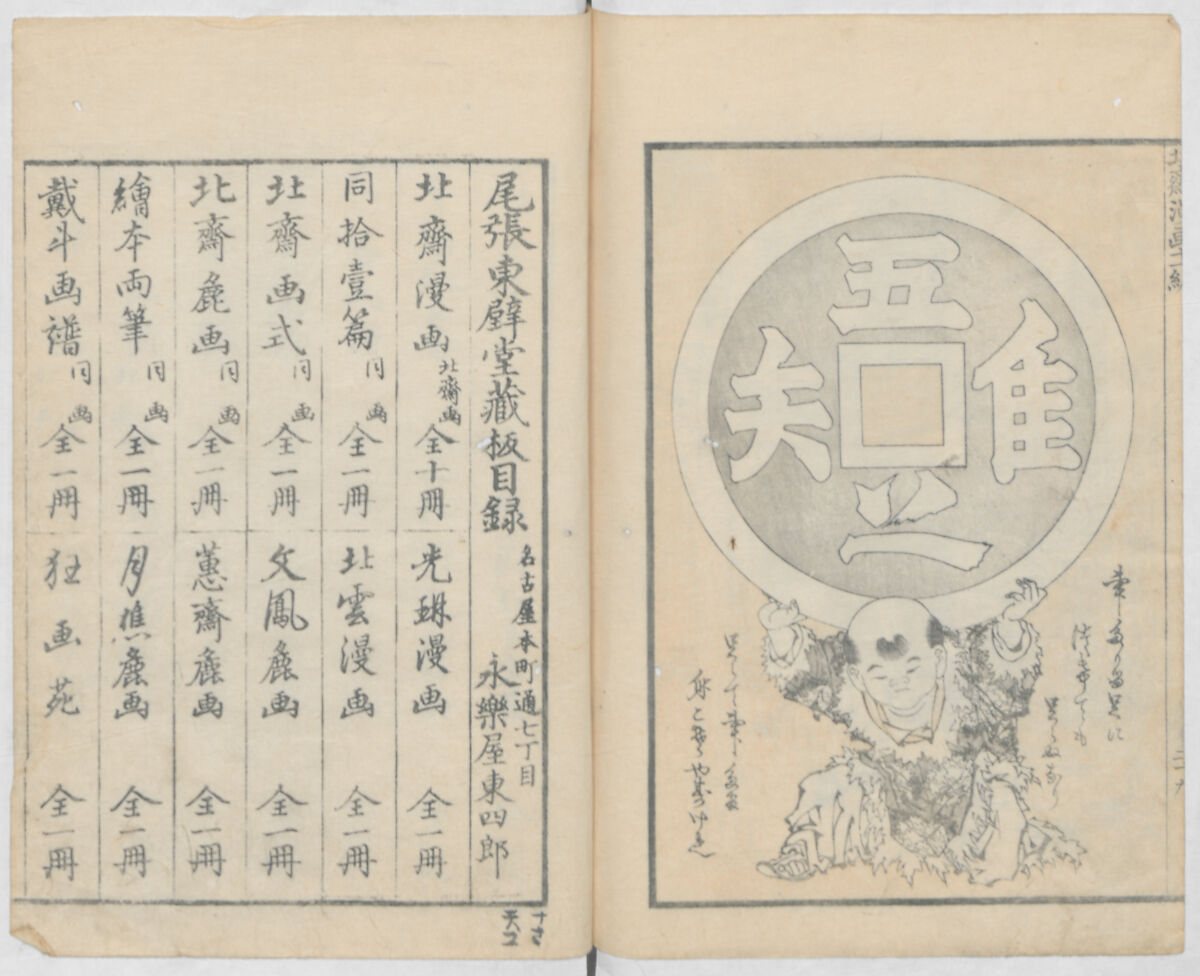 北齋漫画二編
吾唯足知
足らて事たる
身こそやすけれ
尾張東壁堂藏板目録
名古屋本町通七丁目
永樂屋東四郎
北齋漫画 北齋画 全十冊
光琳漫画 全一冊
同拾壹篇 同画 全一冊
北雲漫画 全一冊
北齋画式 同画 全一冊
文鳳麁画 全一冊
北齋麁画 同画 全一冊
蕙齋麁画 全一冊
繪本両筆 同画 全一冊
月樵麁画 全一冊
戴斗画譜 同画 全一冊
狂画苑 全一冊